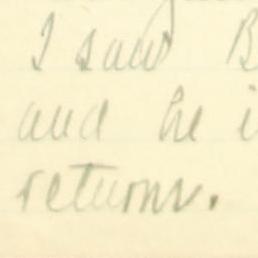 I saw B
and he i
returns.